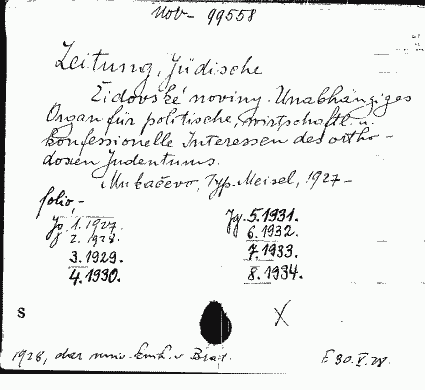 Nov - 99558
Zeitung, Jüdische
Židovské noviny. Unabhängiges
Organ für politische, wirtschaftl. u.
konfessionelle Interessen des ortho-
doxen Judentums.
Mukačevo, Typ. Meisel, 1927 -
folio, -
Jg. 1.1927. Jg. 5.1931.
2. 1928. 6.1932.
3.1929. 7.1933.
4.1930. 8.1934.
S X
1928, dar univ. knih. v Brat.